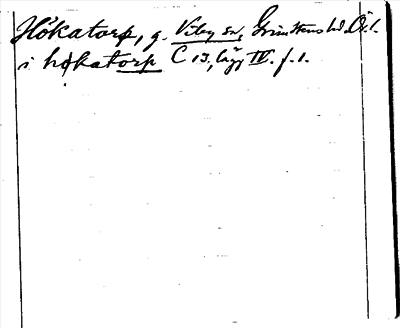 Hökatorp, g. Viby sn, Grimstens hd. Ör.l.
i høkatorp C 13, lägg IV. f. 1.